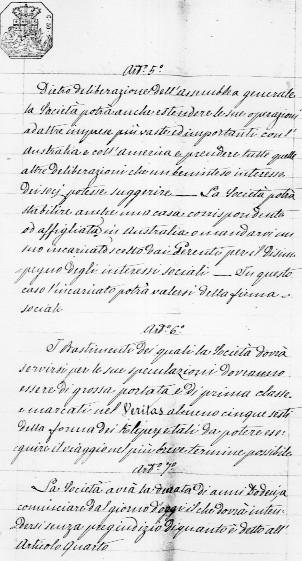 Art.º 5.º
Dietro deliberazione dell'assemblea generale
la Società potrà anche estendere le sue operazioni
ad altre imprese più vaste ed importanti con l'
Australia e coll'America e prendere tutte quelle
altre deliberazioni che un beninteso interesse
dei socj potesse suggerire — La Società potrà
stabilire anche una casa corrispondente
od affigliata in Australia o mandarvi un
suo incaricato scelto dai Gerenti per il disim
pegno degli interessi sociali — In questo
caso l'incaricato potrà valersi della firma
sociale
Art.º 6.º
I Bastimenti dei quali la Società dovrà
servirsi per le sue speculazioni dovranno
essere di grossa portata e di prima classe
e marcati nel Veritas almeno cinque sesti
della forma dei e tali da potere ese
guire il viaggio nel più breve termine possibile
Art.º 7.º
La Società avrà la durata di anni Dodici a
cominciare dal giorno d'oggi il che dovrà inten
dersi senza pregiudizio di quanto è detto all'
Articolo Quarto